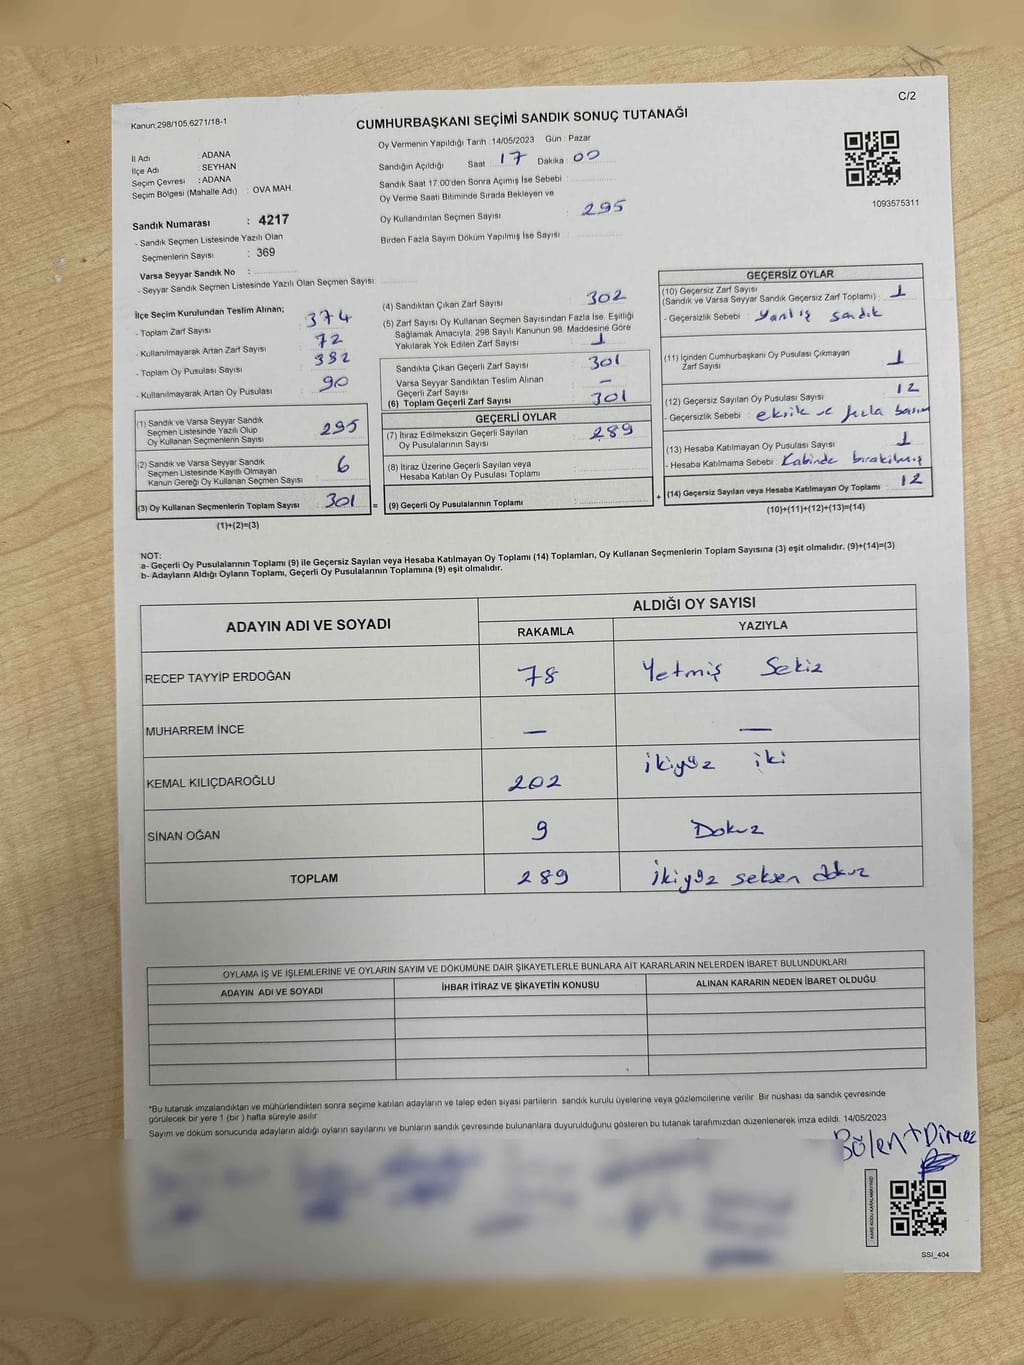 C/2
Kanun;298/105,6271/18-1
CUMHURBAŞKANI SEÇİMİ SANDIK SONUÇ TUTANAĞI
İl Adı : ADANA
İlçe Adı : SEYHAN
Seçim Çevresi : ADANA
Seçim Bölgesi (Mahalle Adı) : OVA MAH.
Sandık Numarası : 4217
- Sandık Seçmen Listesinde Yazılı Olan
Seçmenlerin Sayısı : 369
Varsa Seyyar Sandık No :
- Seyyar Sandık Seçmen Listesinde Yazılı Olan Seçmen Sayısı:
Oy Vermenin Yapıldığı Tarih :14/05/2023 Gün : Pazar
Sandığın Açıldığı Saat : 17 Dakika : 00
Sandık Saat 17:00'den Sonra Açımış İse Sebebi :
Oy Verme Saati Bitiminde Sırada Bekleyen ve
Oy Kullandırılan Seçmen Sayısı : 295
Birden Fazla Sayım Döküm Yapılmış İse Sayısı :
1093575311
İlçe Seçim Kurulundan Teslim Alınan;
- Toplam Zarf Sayısı : 374
- Kullanılmayarak Artan Zarf Sayısı : 72
- Toplam Oy Pusulası Sayısı : 382
- Kullanılmayarak Artan Oy Pusulası : 90
(1) Sandık ve Varsa Seyyar Sandık
Seçmen Listesinde Yazılı Olup
Oy Kullanan Seçmenlerin Sayısı : 295
(2) Sandık ve Varsa Seyyar Sandık
Seçmen Listesinde Kayıtlı Olmayan
Kanun Gereği Oy Kullanan Seçmen Sayısı : 6
(3) Oy Kullanan Seçmenlerin Toplam Sayısı : 301 =
(1)+(2)=(3)
(4) Sandıktan Çıkan Zarf Sayısı : 302
(5) Zarf Sayısı Oy Kullanan Seçmen Sayısından Fazla İse, Eşitliği
Sağlamak Amacıyla, 298 Sayılı Kanunun 98. Maddesine Göre
Yakılarak Yok Edilen Zarf Sayısı : 1
Sandıkta Çıkan Geçerli Zarf Sayısı : 301
Varsa Seyyar Sandıktan Teslim Alınan
Geçerli Zarf Sayısı : —
(6) Toplam Geçerli Zarf Sayısı : 301
GEÇERLİ OYLAR
(7) İtiraz Edilmeksizin Geçerli Sayılan
Oy Pusulalarının Sayısı : 289
(8) İtiraz Üzerine Geçerli Sayılan veya
Hesaba Katılan Oy Pusulası Toplamı :
(9) Geçerli Oy Pusulalarının Toplamı : +
GEÇERSİZ OYLAR
(10) Geçersiz Zarf Sayısı
(Sandık ve Varsa Seyyar Sandık Geçersiz Zarf Toplamı) : 1
- Geçersizlik Sebebi : yanlış sandık
(11) İçinden Cumhurbaşkanı Oy Pusulası Çıkmayan
Zarf Sayısı : 1
(12) Geçersiz Sayılan Oy Pusulası Sayısı : 12
- Geçersizlik Sebebi : eksik ve fazla
(13) Hesaba Katılmayan Oy Pusulası Sayısı : 1
- Hesaba Katılmama Sebebi : Kabinde bırakılmış
(14) Geçersiz Sayılan veya Hesaba Katılmayan Oy Toplamı : 12
(10)+(11)+(12)+(13)=(14)
NOT:
a- Geçerli Oy Pusulalarının Toplamı (9) ile Geçersiz Sayılan veya Hesaba Katılmayan Oy Toplamı (14) Toplamları, Oy Kullanan Seçmenlerin Toplam Sayısına (3) eşit olmalıdır. (9)+(14)=(3)
b- Adayların Aldığı Oyların Toplamı, Geçerli Oy Pusulalarının Toplamına (9) eşit olmalıdır.
ADAYIN ADI VE SOYADI
ALDIĞI OY SAYISI
RAKAMLA YAZIYLA
RECEP TAYYİP ERDOĞAN 78 Yetmiş Sekiz
MUHARREM İNCE — —
KEMAL KILIÇDAROĞLU 202 ikiyüz iki
SİNAN OĞAN 9 Dokuz
TOPLAM 289 ikiyüz seksen dokuz
OYLAMA İŞ VE İŞLEMLERİNE VE OYLARIN SAYIM VE DÖKÜMÜNE DAİR ŞİKAYETLERLE BUNLARA AİT KARARLARIN NELERDEN İBARET BULUNDUKLARI
ADAYIN ADI VE SOYADI İHBAR İTİRAZ VE ŞİKAYETİN KONUSU ALINAN KARARIN NEDEN İBARET OLDUĞU
*Bu tutanak imzalandıktan ve mühürlendikten sonra seçime katılan adayların ve talep eden siyasi partilerin sandık kurulu üyelerine veya gözlemcilerine verilir. Bir nüshası da sandık çevresinde
görülecek bir yere 1 (bir ) hafta süreyle asılır.
Sayım ve döküm sonucunda adayların aldığı oyların sayılarını ve bunların sandık çevresinde bulunanlara duyurulduğunu gösteren bu tutanak tarafımızdan düzenlenerek imza edildi. 14/05/2023
SSI_404